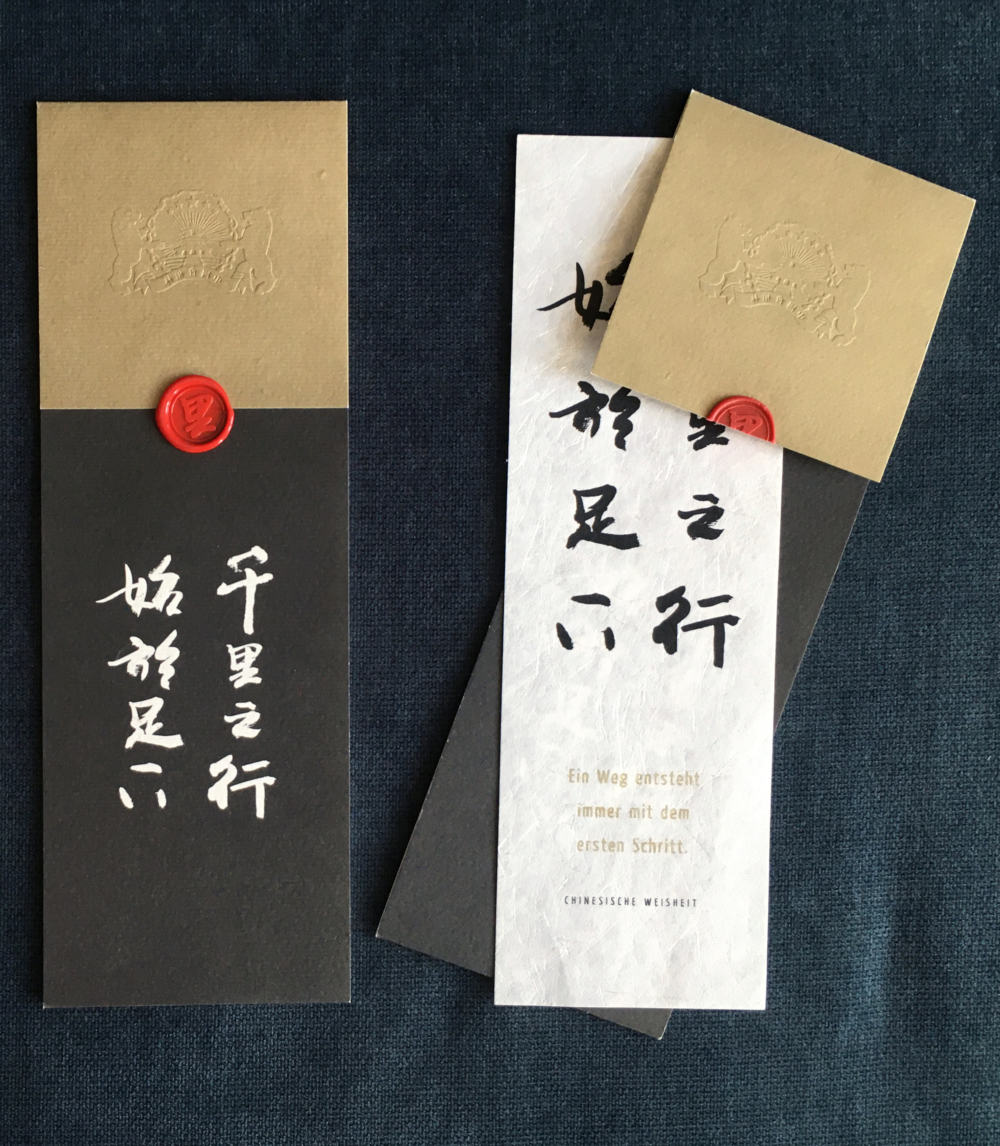 里
千里之行
始於足下
里
里之行
始於足下
Ein Weg entsteht
immer mit dem
ersten Schritt.
CHINESISCHE WEISHEIT